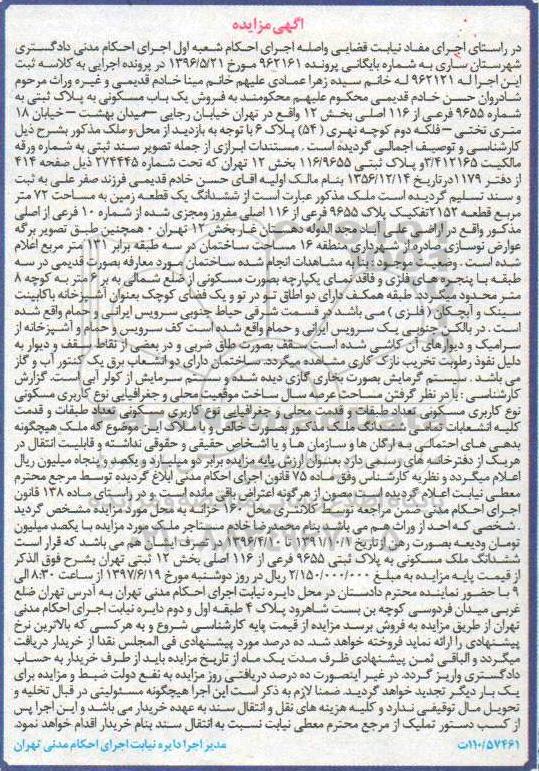 آگهی مزایده
در راستای اجرای مفاد نیابت قضایی واصله اجرای احکام شعبه اول اجرای احکام مدنی دادگستری
شهرستان ساری به شماره بایگانی پرونده ۹۶۲۱۶۱ مورخ ۱۳۹۶/۵/۲۱ در پرونده اجرایی به کلاسه
این اجرا له ۹۶۲۱۲۱ له خانم سیده زهرا عمادی علیهم خانم مینا خادم قدیمی و غیره وراث مرحوم
شادروان حسن خادم قدیمی محکوم علیهم محکومند به فروش یک باب مسکونی به پلاک ثبتی به
شماره ۹۶۵۵ فرعی از ۱۱۶ اصلی بخش ۱۲ واقع در تهران خیابان رجایی – میدان بهشت – خیابان ۱۸
متری تختی – فلکه دوم کوچه نهری (۵۴) پلاک ۶ با توجه به بازدید از محل و ملک مذکور بشرح ذیل
کارشناسی و توصیف اجمالی گردیده است . مستندات ابرازی از جمله تصویر سند ثبتی به شماره ورقه
مالکیت ۳/۴۱۲۱۶۵ و پلاک ثبتی ۱۱۶/۹۶۵۵ بخش ۱۲ تهران که تحت شماره ۲۷۴۴۴۵ ذیل صفحه ۴۱۴
از دفتر ۱۱۷۹ در تاریخ ۱۳۵۶/۱۲/۱۴ بنام مالک اولیه آقای حسن خادم قدیمی فرزند صفر علی به ثبت
و سند تسلیم گردیده است ملک مذکور عبارت است از ششدانگ یک قطعه زمین به مساحت ۷۲ متر
مربع قطعه ۲۱۵۲ تفکیک پلاک ۹۶۵۵ فرعی از ۱۱۶ اصلی مفروز ومجزی شده از شماره ۱۰ فرعی از اصلی
مذکور واقع در اراضی علی آباد مجد الدوله دهستان غار بخش ۱۲ تهران ۰ همچنین طبق تصویر برگه
عوارض نوسازی صادره از شهرداری منطقه ۱۶ مساحت ساختمان در سه طبقه برابر ۱۳۱ متر مربع اعلام
شده است . وضعیت موجود : بنا به مشاهدات انجام شده ساختمان مورد معارفه بصورت قدیمی در سه
طبقه با پنجره های فلزی و فاقد نمای یکپارچه بصورت مسکونی از ضلع شمالی به بر ۶ متر به کوچه ۸
متر محدود میگردد. طبقه همکف دارای دو اطاق تو در تو و یک فضای کوچک بعنوان آشپزخانه باکابینت
سینک و آبچکان ( فلزی ) می باشد در قسمت شرقی حیاط جنوبی سرویس ایرانی و حمام واقع شده
است . در بالکن جنوبی یک سرویس ایرانی و حمام واقع شده است کف سرویس و حمام و آشپزخانه از
سرامیک و دیوارهای آن کاشی شده است سقف بصورت طاق ضربی و در بعضی از نقاط سقف و دیوار به
دلیل نفوذ رطوبت تخریب نازک کاری مشاهده میگردد. ساختمان دارای دو انشعاب برق یک کنتور آب و گاز
می باشد . سیستم گرمایش بصورت بخاری گازی دیده شده و سستم سرمایش از کولر آبی است. گزارش
کارشناسی : با در نظر گرفتن مساحت عرصه سال ساخت موقعیت محلی و جغرافیایی نوع کاربری مسکونی
نوع کاربری مسکونی تعداد طبقات و قدمت محلی و جغرافیایی نوع کاربری مسکونی تعداد طبقات و قدمت
کلیه انشعابات تمامی ششدانگ ملک مذکور بصورت خالص و با ملاک این موضوع که ملک هیچگونه
بدهی های احتمالی به ارگان ها و سازمان ها و یا اشخاص حقیقی و حقوقی نداشته و قابلیت انتقال در
هریک از دفترخانه های رسمی دارد بعنوان ارزش پایه مزایده برابر دو میلیارد و یکصد و پنجاه میلیون ریال
اعلام میگردد و نظریه کارشناس وفق ماده ۷۵ قانون اجرای احکام مدنی ابلاغ گردیده توسط مرجع محترم
معطی نیابت اعلام گردیده است مصون از هرگونه اعتراض باقی مانده است . و در راستای ماده ۱۳۸ قانون
اجرای احکام مدنی ضمن مراجعه توسط کلانتری محل ۱۶۰ خزانه به محل مورد مزایده مشخص گردید
. شخصی که احد از وراث هم می باشد بنام محمدرضا خادم مستاجر ملک مورد مزایده با یکصد میلیون
تومان ودیعه بصورت رهن از تاریخ ۱۳۹۱/۱۰/۱ تا ۱۳۹۶/۴/۱ در تصرف ایشان هم می باشد که قرار است
ششدانگ ملک مسکونی به پلاک ثبتی ۹۶۵۵ فرعی از ۱۱۶ اصلی بخش ۱۲ ثبتی تهران بشرح فوق الذکر
از قیمت پایه مزایده به مبلغ ۲/۱۵۰/۰۰۰/۰۰۰ ریال در روز دوشنبه مورخ ۱۳۹۷/۶/۱۹ از ساعت ۸:۳۰ الی
۹ با حضور نماینده محترم دادستان در محل دایره نیابت اجرای احکام مدنی تهران به آدرس تهران ضلع
غربی میدان فردوسی کوچه بن بست شاهرود پلاک ۴ طبقه اول و دوم دایره نیابت اجرای احکام مدنی
تهران از طریق مزایده به فروش برسد مزایده از قیمت پایه کارشناسی شروع و به هر کسی که بالاترین نرخ
پیشنهادی را ارائه نماید فروخته خواهد شد. ده درصد مورد پیشنهادی فی المجلس نقدا از خریدار دریافت
میگردد و الباقی ثمن پیشنهادی ظرف مدت یک ماه از تاریخ مزایده باید از طرف خریدار به حساب
دادگستری واریز گردد. در غیر اینصورت ده درصد دریافتی روز مزایده به نفع دولت ضبط و مزایده برای
یک بار دیگر تجدید خواهد گردید. ضمنا لازم به ذکر است این اجرا هیچگونه مسئولیتی در قبال تخلیه و
تحویل مال توقیفی ندارد و کلیه هزینه های نقل و انتقال سند به عهده خریدار می باشد و این اجرا پس
از کسب دستور تملیک از مرجع محترم معطی نیابت نسبت به انتقال سند بنام خریدار اقدام خواهد نمود.
مدیر اجرا دایره نیابت اجرای احکام مدنی تهران
۱۱۰/۵۷۴۶۱ت